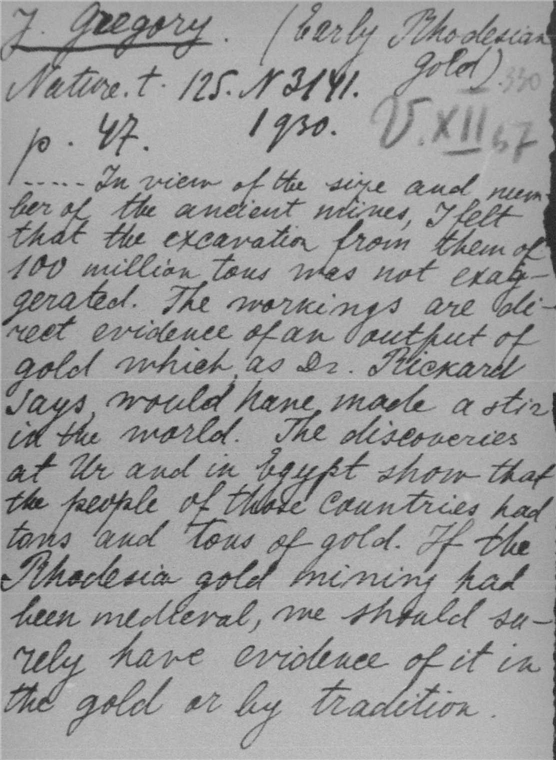 J. Gregory. (Early Rhodesian
gold) 330
Nature. t. 125. N 3141.
p. 47. 1930. V.XII 67
..... In view of the size and num-
ber of the ancient mines, I felt
that the excavation from them of
100 million tons was not exag-
gerated. The workings are di-
rect evidence of an output of
gold which, as Dr. Rickard
says, would have made a stir
in the world. The discoveries
at Ur and in Egypt show that
the people of those countries had
tons and tons of gold. If the
Rhodesia gold mining had
been medieval, we should su-
rely have evidence of it in
the gold or by tradition.